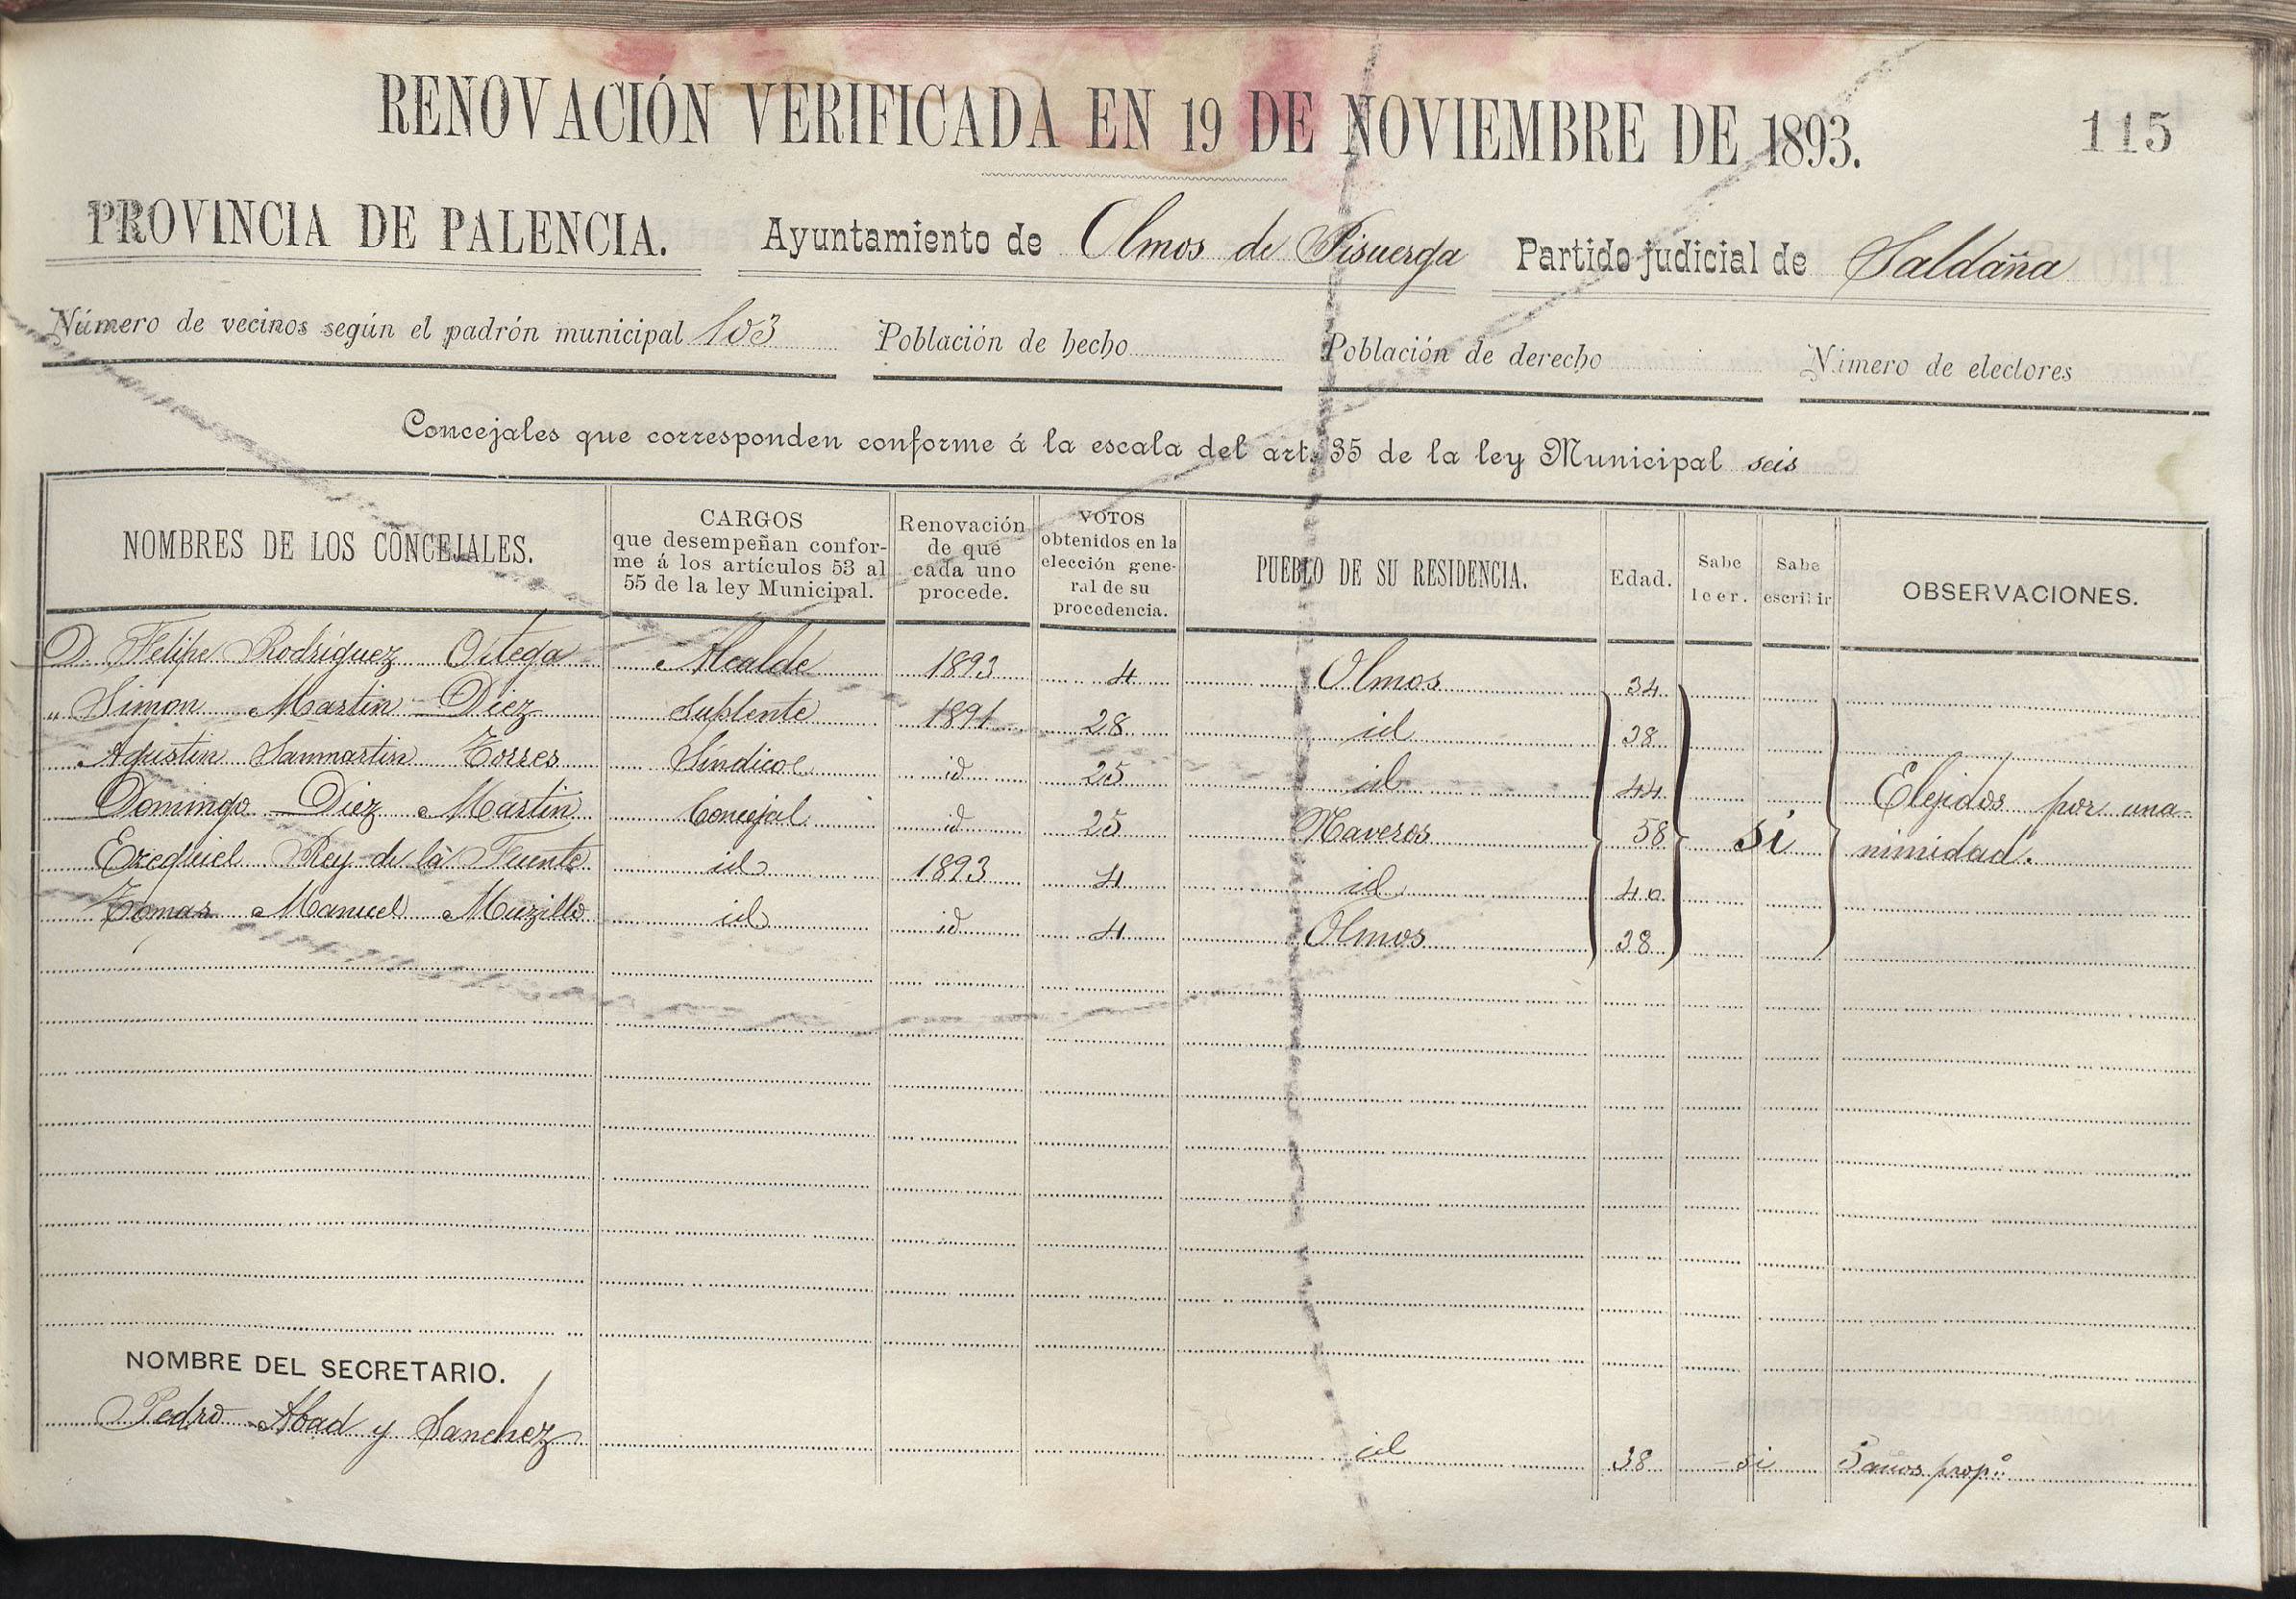 RENOVACIÓN VERIFICADA EN 19 DE NOVIEMBRE DE 1893.
115
PROVINCIA DE PALENCIA. Ayuntamiento de Olmos de Pisuerga Partido judicial de Saldaña
Número de vecinos según el padrón municipal 103 Población de hecho Población de derecho Número de electores
Concejales que corresponden conforme á la escala del art. 35 de la ley Municipal seis
NOMBRES DE LOS CONCEJALES.
CARGOS
que desempeñan confor-
me á los artículos 53 al
55 de la ley Municipal.
Renovación
de que
cada uno
procede.
VOTOS
obtenidos en la
elección gene-
ral de su
procedencia.
PUEBLO DE SU RESIDENCIA.
Edad.
Sabe
leer.
Sabe
escribir
OBSERVACIONES.
D. Felipe Rodríguez Ortega Alcalde 1893 4 Olmos 34
" Simon Martin Diez Suplente 1891 28 id 38
Agustin Sanmartin Torres Síndico id 25 id 44
Domingo Diez Martin Concejal id 25 Naveros 58 si Elejidos por una-
nimidad.
Ezequiel Rey de la Fuente id 1893 4 id 40
Tomas Manuel Muzillo id id 4 Olmos 38
NOMBRE DEL SECRETARIO.
Pedro Abad y Sanchez id 38 si 5 años prop.º